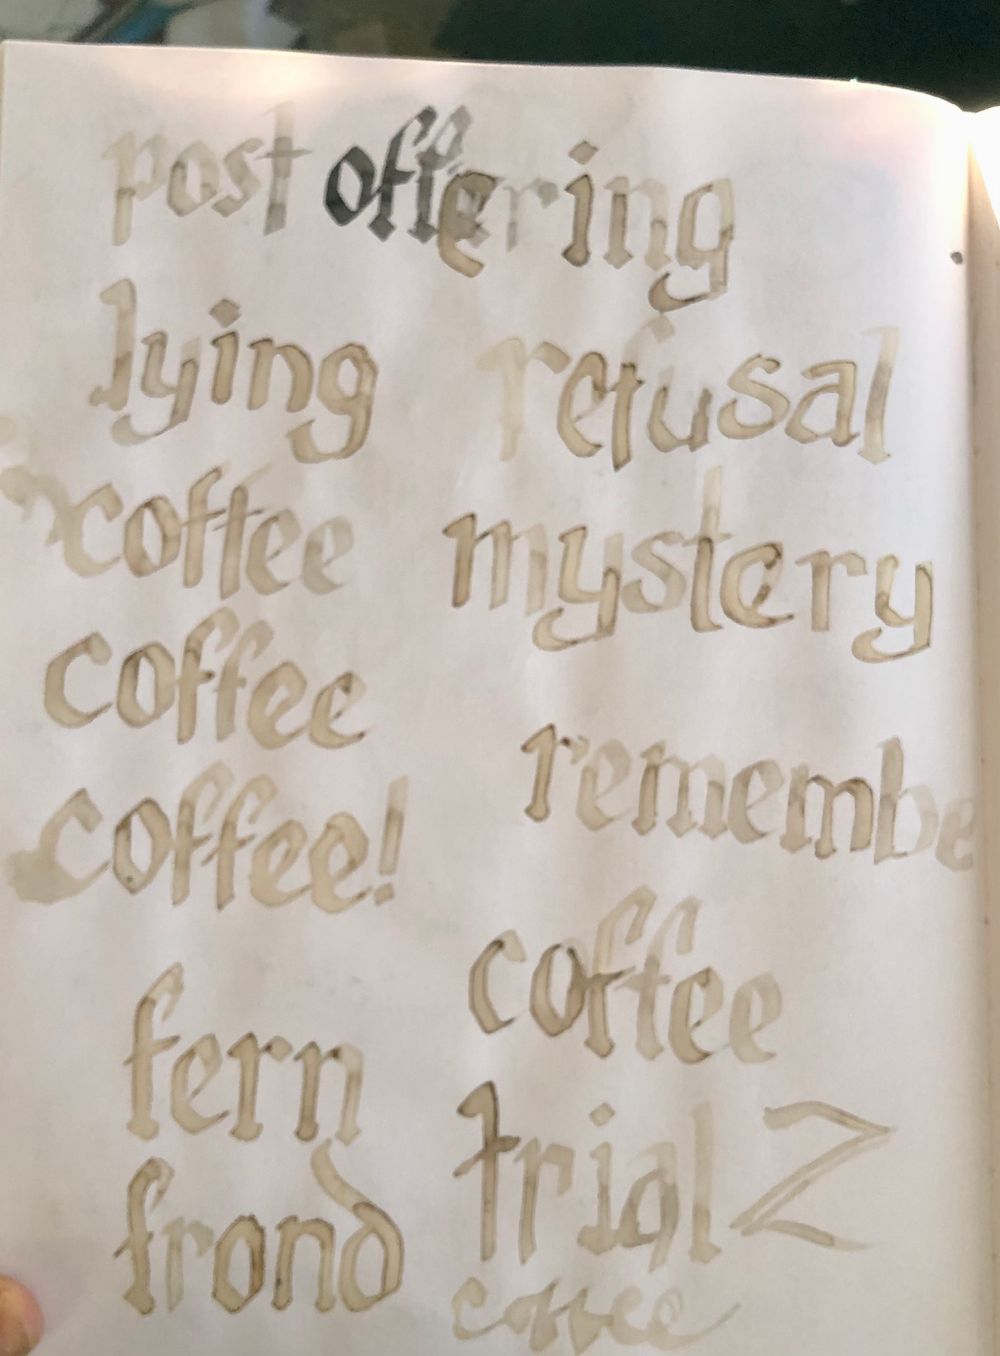 post offering
lying refusal
coffee mystery
coffee
remembe
coffee!
coffee
fern
trial 2
frond
coffee